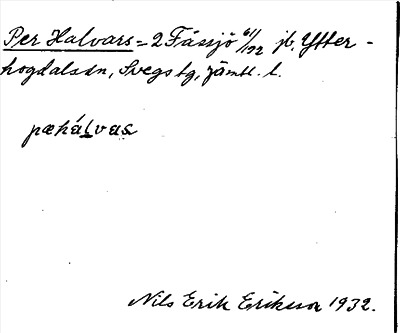 Per Halvars = 2 Fåssjö 61/192 jb. Ytter-
hogdals sn, Svegs tg, Jämtl. l.
pæhálvas
Nils Erik Eriksson 1932.